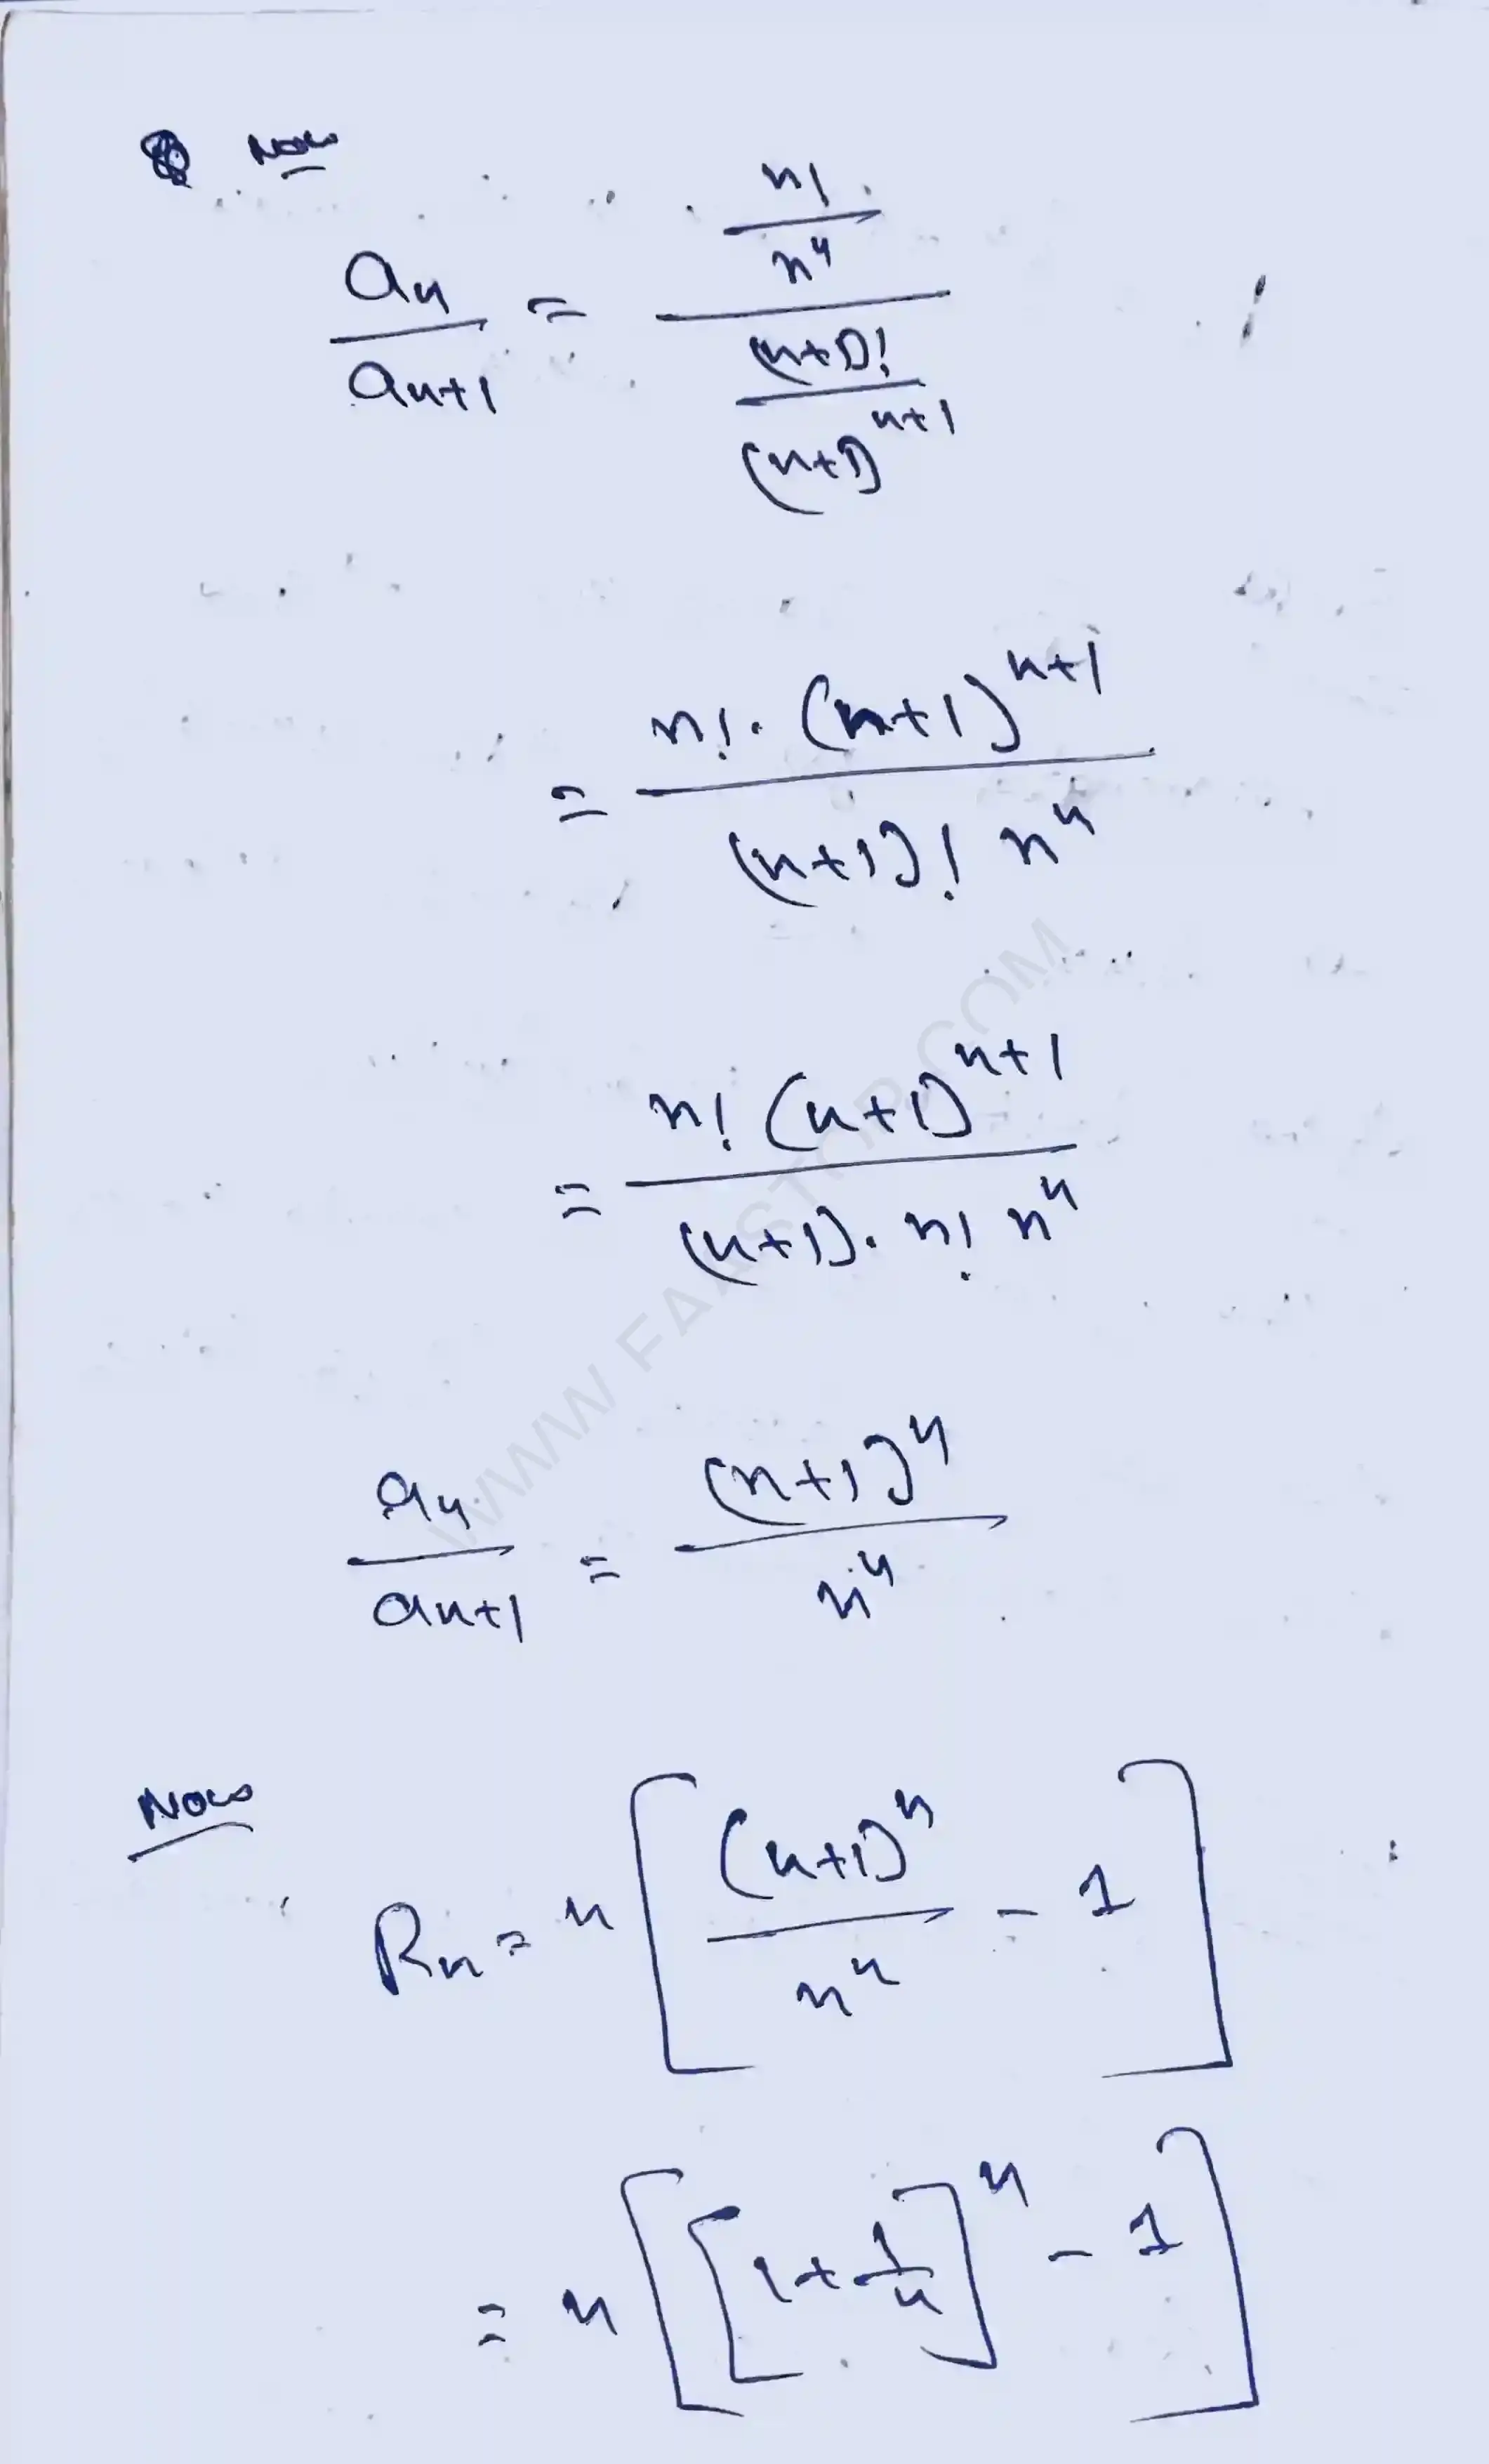 Now
aₙ/aₙ₊₁ = (n!/nⁿ)/((n+1)!/(n+1)ⁿ⁺¹)
= n!·(n+1)ⁿ⁺¹/((n+1)! nⁿ)
= n! (n+1)ⁿ⁺¹/((n+1)·n! nⁿ)
aₙ/aₙ₊₁ = (n+1)ⁿ/nⁿ
Now
Rₙ = n[(n+1)ⁿ/nⁿ - 1]
= n[[1+1/n]ⁿ - 1]
WWW.FAASTOP.COM